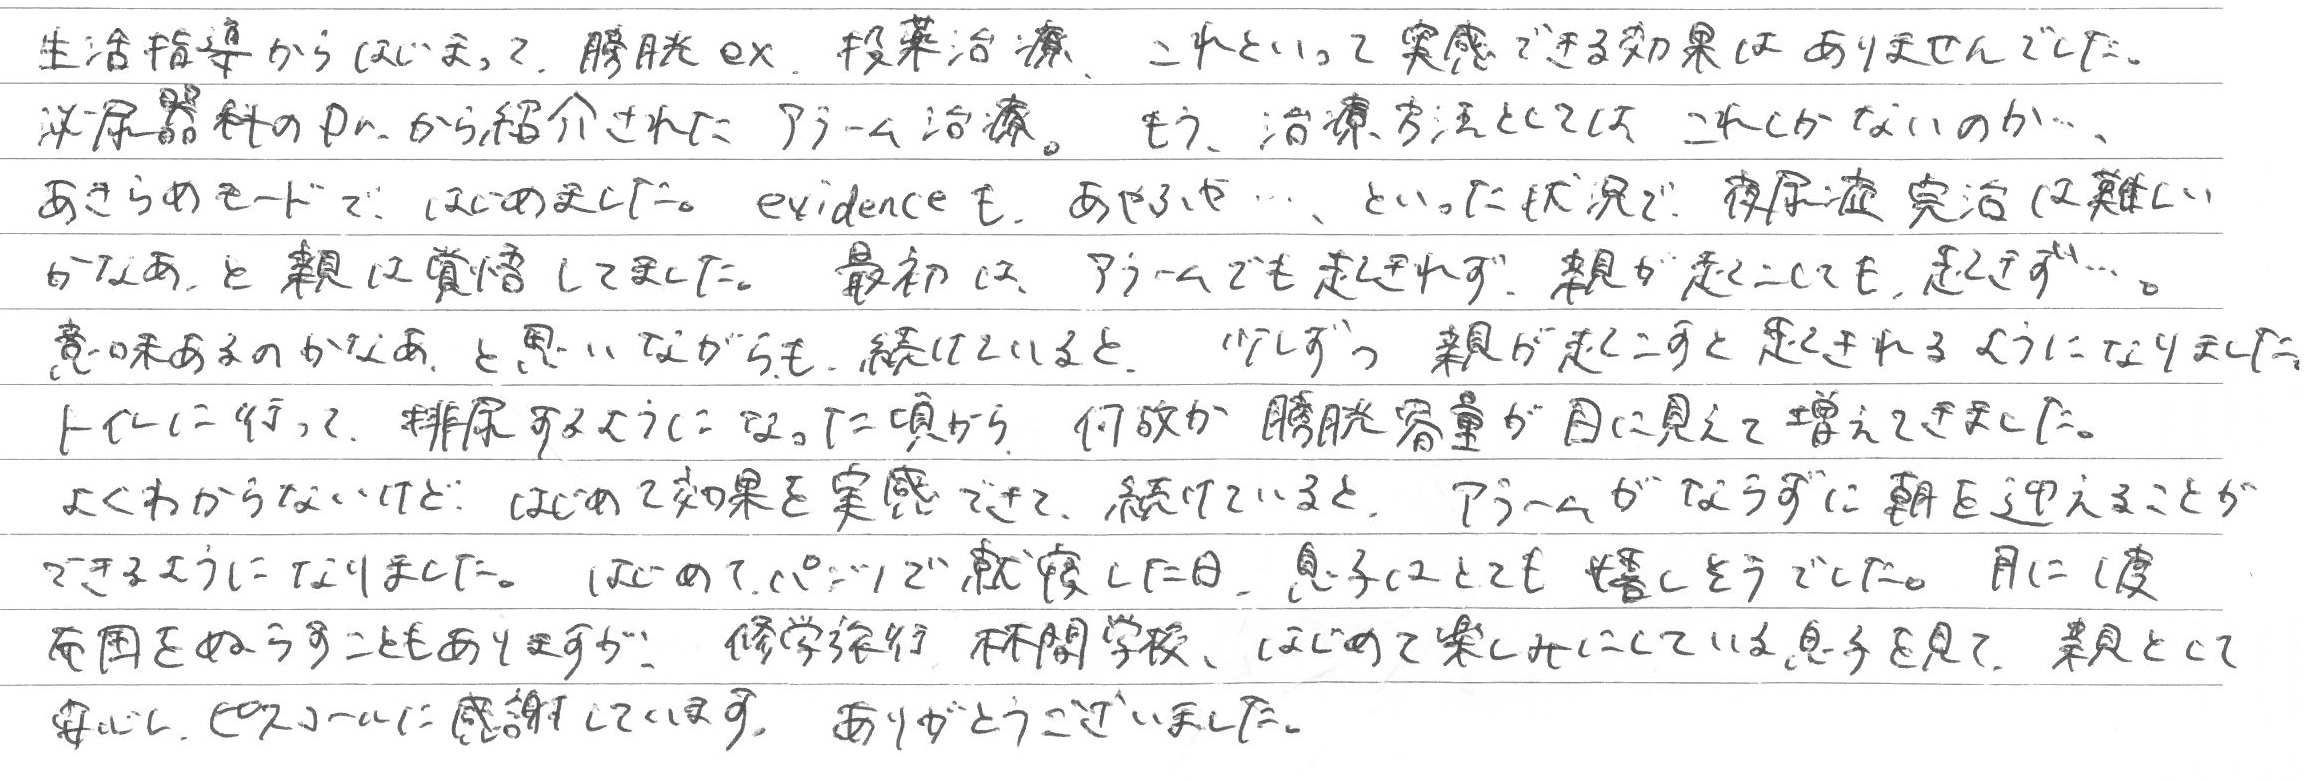 生活指導からはじまって、膀胱ex、投薬治療、これといって実感できる効果はありませんでした。
泌尿器科のDr.から紹介されたアラーム治療。もう、治療方法としては、これしかないのか…、
あきらめモードで、はじめました。evidenceも、あやふや…、といった状況で、夜尿症完治は難しい
かなあ、と親は覚悟してました。最初は、アラームでも起きれず、親が起こしても、起きず…。
意味あるのかなあ、と思いながらも、続けていると、少しずつ親が起こすと起きれるようになりました。
トイレに行って、排尿するようになった頃から、何故か膀胱容量が目に見えて増えてきました。
よくわからないけど、はじめて効果を実感できて、続けていると、アラームがならずに朝を迎えることが
できるようになりました。はじめて、パンツで就寝した日、息子はとても嬉しそうでした。月に1度
布団をぬらすこともありますが、修学旅行、林間学校、はじめて楽しみにしている息子を見て、親として
安心し、ピスコールに感謝しています。ありがとうございました。